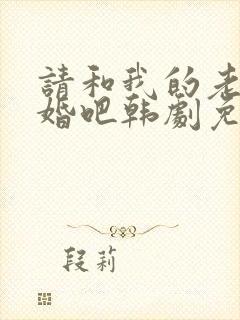 請和我的老
婚吧韩劇免
段莉